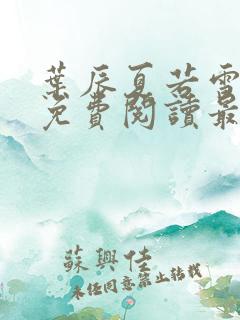 葉辰夏若雪
免費閱讀最
蘇興佳
未经同意禁止转载